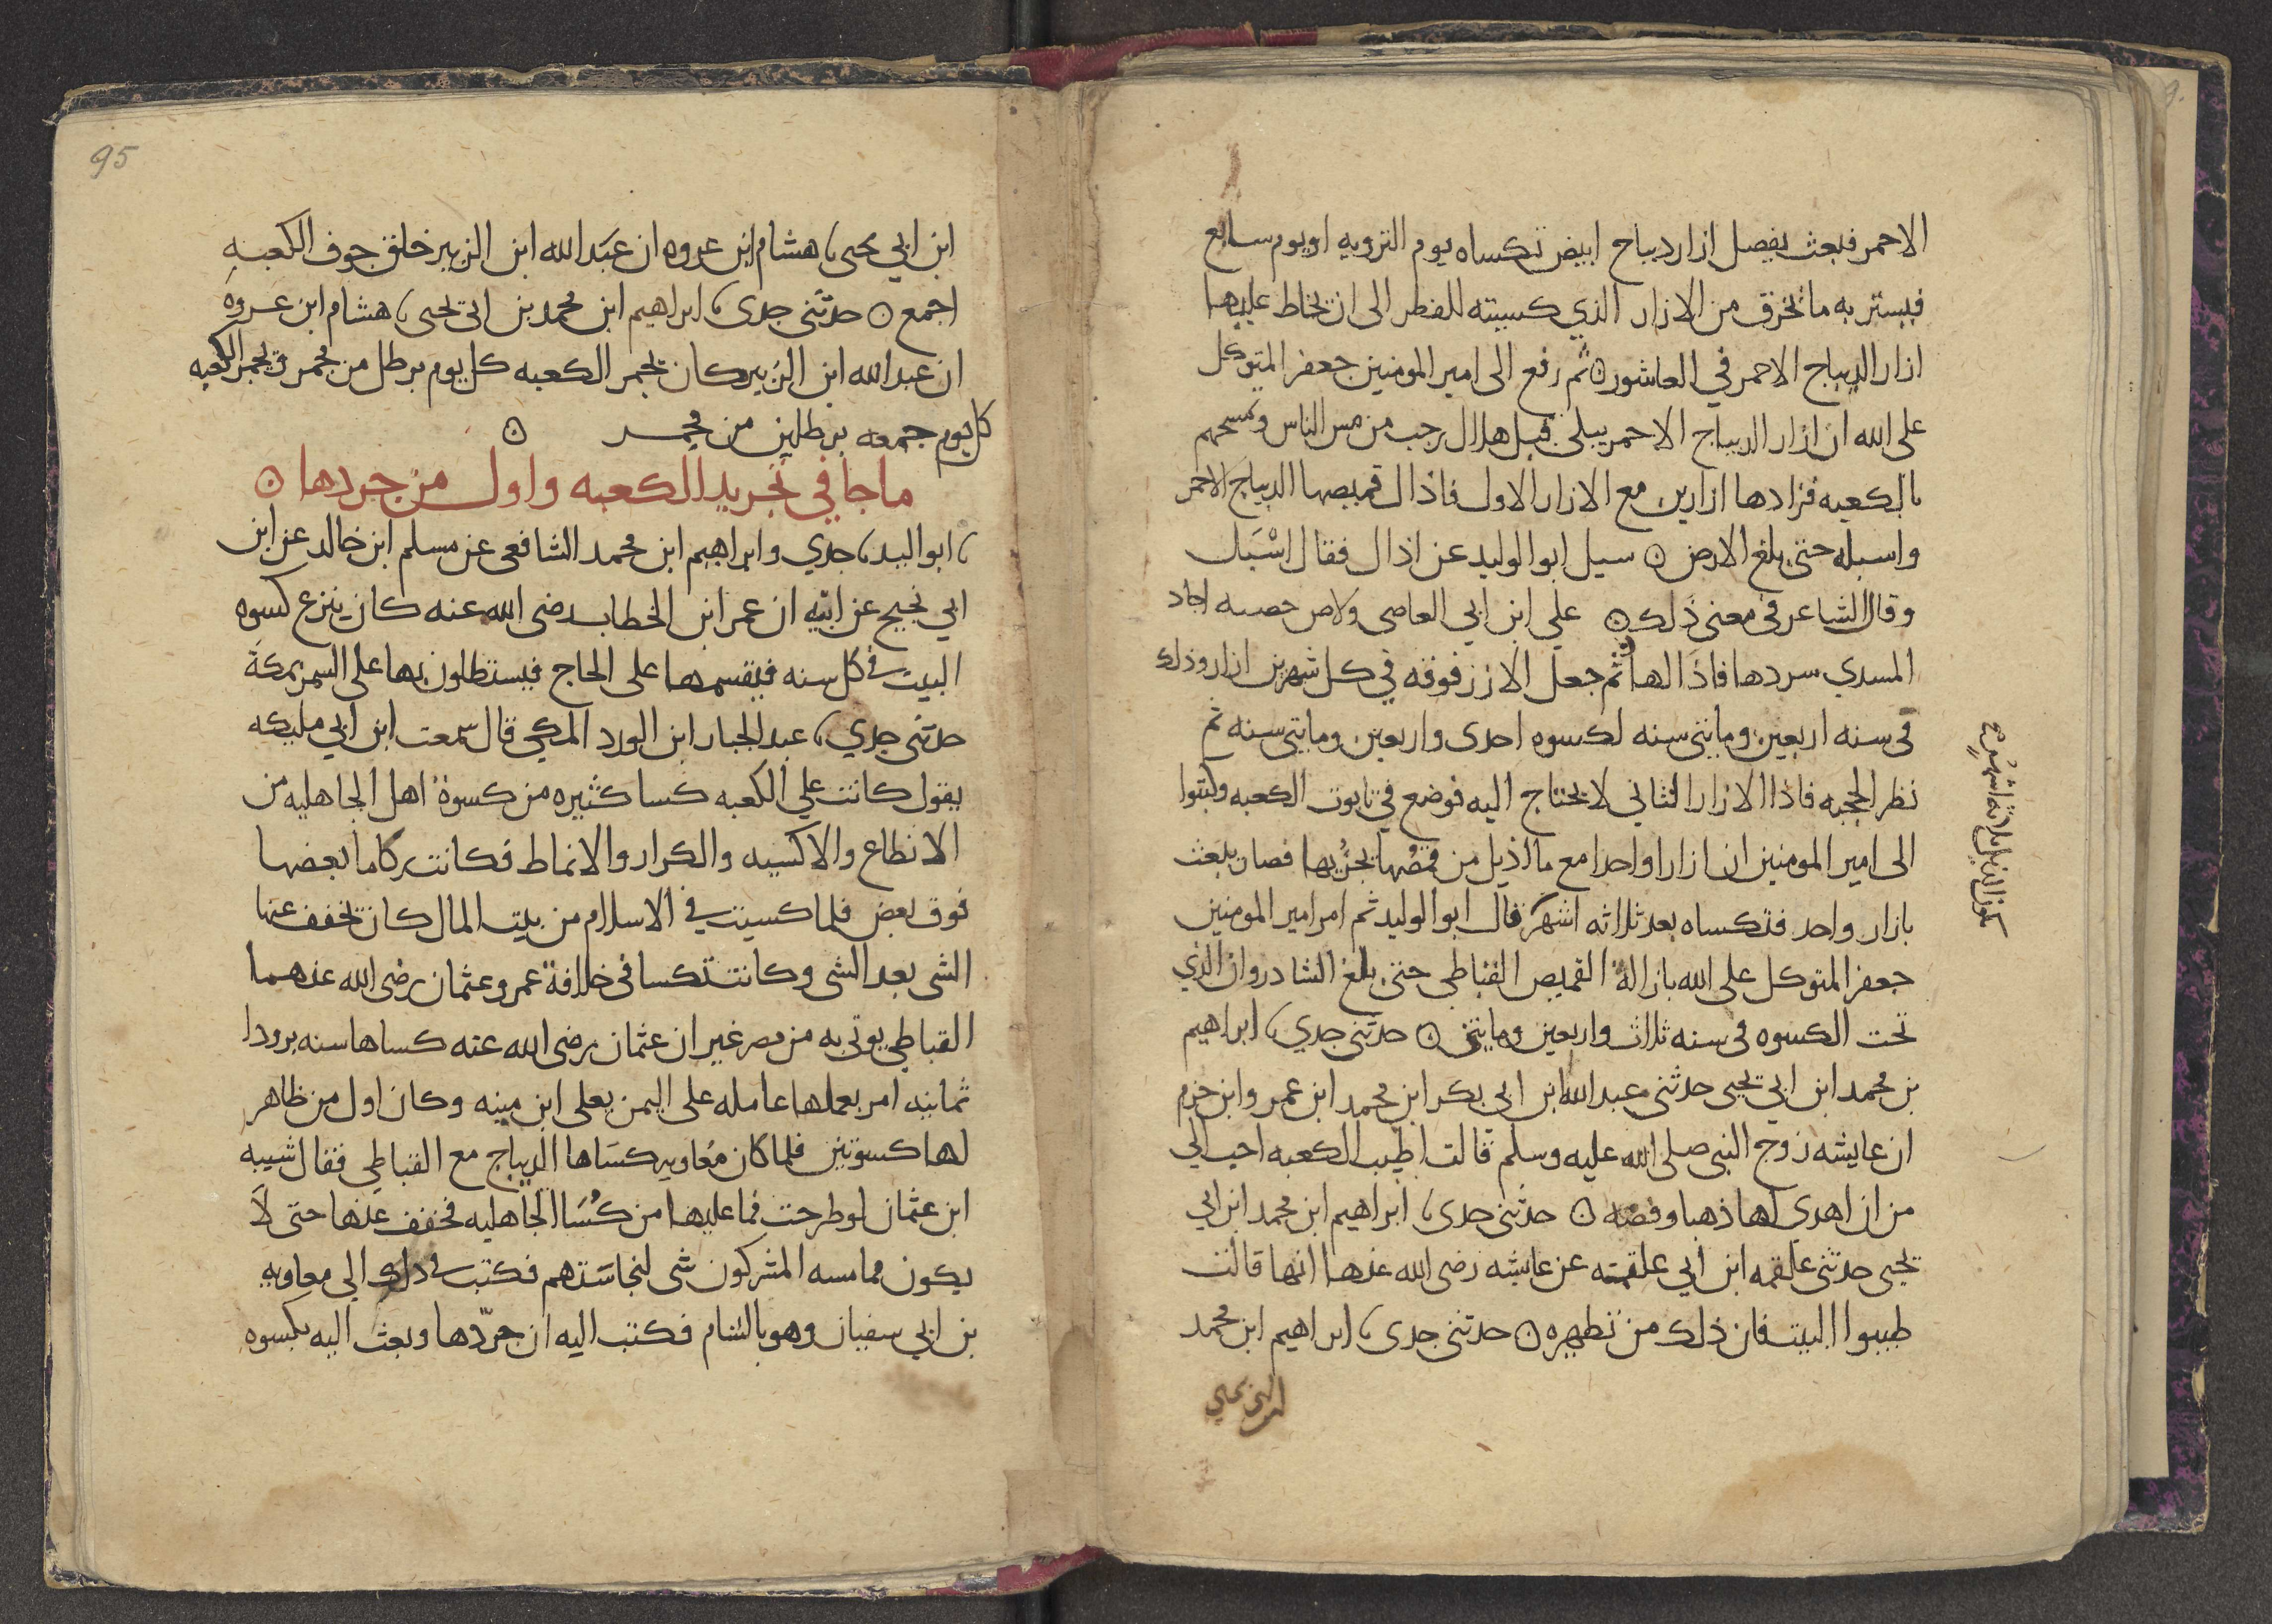 الاحمر فبعث بفصل ازار ديباج ابيض تكساه يوم الترويه او يوم سابع
فيستر به ما تخرق من الازار الذي كسيته للفطر الى ان يخاط عليها
ازار الديباج الاحمر في العاشور ۞ ثم رفع الى امير المومنين جعفر المتوكل
على الله ان ازار الديباج الاحمر يبلى قبل هلال رجب من مس الناس وتمسحهم
بالكعبه فزادها ازارين مع الازار الاول فاذال قميصها الديباج الاحمر
واسبله حتى بلغ الارض ۞ سيل ابو الوليد عن اذال فقال اسْبَل
وقال الشاعر في معنى ذلك ۞ علي ابن ابي العاصي ولاص حصينه اجاد
المسدي سردها فاذالها ثم جعل الازر فوقه في كل شهرين ازار وذلك
في سنه اربعين وماتى سنه لكسوه احدى واربعين وماتى سنه ثم
نظر الحجبه فاذا الازار الثاني لا يحتاج اليه فوضع في تابوت الكعبه وكتبوا
الى امير المومنين ان ازارا واحدا مع ما اذيل من قمُصُها يجزُيها فصار يبعث
بازار واحد فتكساه بعد ثلاثه اشهر قال ابو الوليد ثم امر امير المومنين
جعفر المتوكل على الله باذالة القميص القباطي حتى بلغ الشادروان الذي
تحت الكسوه في سنه ثلاث واربعين ومايتين ۞ حدثني جدي، ابراهيم
بن محمد ابن ابي يحيى حدثني عبد الله ابن ابي بكر ابن محمد ابن عمر وابن حزم
ان عايشه زوج النبي صلى الله عليه وسلم قالت اطيب الكعبه احب الي
من ان اهدي لها ذهبا وفضه ۞ حدثني جدي، ابراهيم ابن محمد ابن ابي
يحيى حدثني علقمه ابن ابي علقمته عن عايشه رضى الله عنها انها قالت
طيبوا البيت فان ذلك من تطهيره ۞ حدثني جدي، ابراهيم ابن محمد
ابن ابي يحيى
95
ابن ابي يحيى، هشام ابن عروه ان عبَد الله ابن الزبير خلق جوف الكعبه
اجمع ۞ حدثني جدي، ابراهيم ابن محمد بن ابي يحيى، هشام ابن عروه
ان عبد الله ابن الزبير كان يجمر الكعبه كل يوم برطل من مجمر ويجمر الكعبه
كل يوم جمعه برطلين من مجمر ۞
ما جا في تجريد الكعبه واول من جردها ۞
، ابو اليد، جدي وابراهيم ابن محمد الشافعي عن مسلم ابن خالد عن ابن
ابي نجيح عن ابيه ان عمر ابن الخطاب رضى الله عنه كان ينزع كسوه
البيت في كل سنه فيقسمها على الحاج فيستظلون بها على السمر بمكة
حدثني جدي، عبد الجبار ابن الورد المكي قال سمعت ابن ابي مليكه
يقول كانت علي الكعبه كسا كثيره من كسوة اهل الجاهليه من
الانطاع والاكسيه والكرار والانماط فكانت ركاما بعضها
فوق بعض فلما كسيت في الاسلام من بيت المال كان تخفف عنها
الشى بعد الشى وكانت تكسا في خلافة عمر وعثمان رضى الله عنهما
القباطي يوتى به من مصر غير ان عثمان رضى الله عنه كساها سنه برودا
ثمانيه امر بعملها عامله على اليمن يعلى ابن مينه وكان اول من ظاهر
لها كسوتين فلما كان معُاويه كسَاها الديباج مع القباطي فقال شيبه
ابن عثمان لو طرحت فما عليها من كُسَا الجاهليه فخفف عنها حتى لاَ
يكون مما مسه المشركون شى لنجاسَتهم فكتب في ذلك الي معاويه
بن ابي سفيان وهو بالشام فكتب اليه ان جرّدها وبعث اليه بكسوه